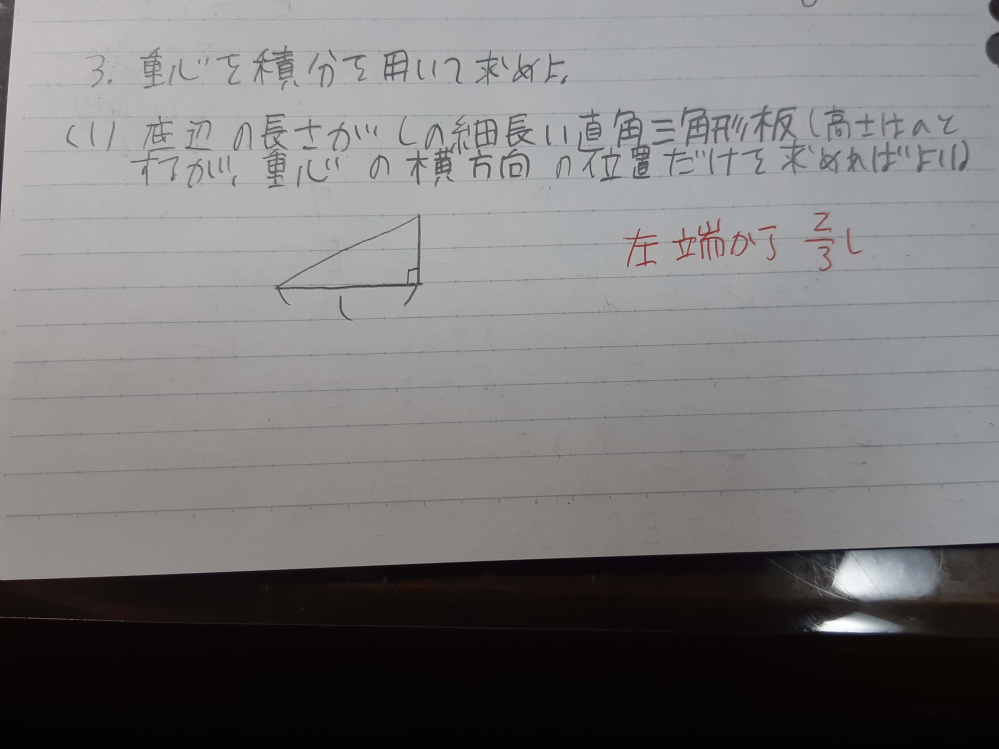 3. 重心を積分を用いて求めよ。
(1) 底辺の長さがlの細長い直角三角形板(高さはaと
するが、重心の横方向の位置だけを求めればよい)
左端から 2/3 l
l